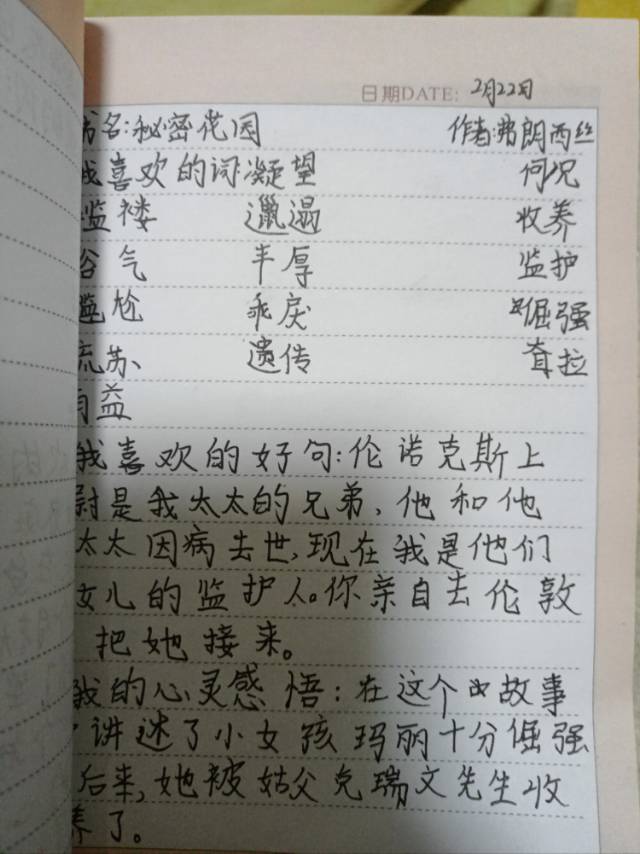 日期DATE: 2月22日
书名:秘密花园 作者:弗朗西丝
我喜欢的词凝望 何况
褛 邋遢 收养
谷气 丰厚 监护
尴尬 乖戾 倔强
流苏 遗传 耷拉
有益
我喜欢的好句:伦诺克斯上
尉是我太太的兄弟,他和他
太太因病去世,现在我是他们
女儿的监护人。你亲自去伦敦
把她接来。
我的心灵感悟:在这个故事
讲述了小女孩玛丽十分倔强
后来,她被姑父克瑞文先生收
养了。